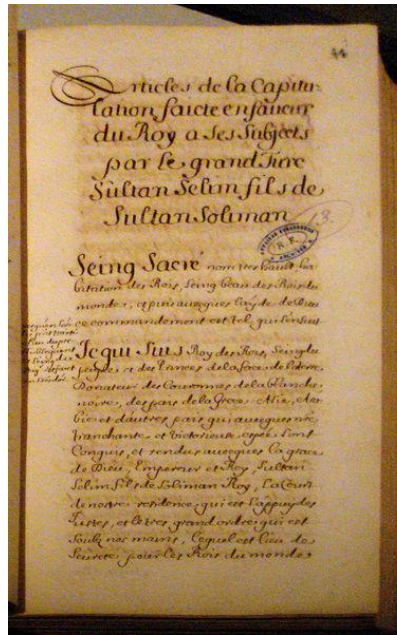 44
Articles de la Capitu-
lation faicte en faueur
du Roy a Ses Subjects
par Le grand Turc
Sultan Selim fils de
Sultan Soliman
13.
R. F.
Seing Sacré nom tres hault ha-
bitation des Rois, Seing beau des Rois du
monde, et puis auecques l'ayde de Dieu
ce commandement est tel qui s'ensuit
Je qui Suis Roy des Rois, Seing du
peuple, et des Princes de la face de la terre,
Donateur des Couronnes de la blanche
noire, des pais de la Grece, Asie, Ara-
bie et d'autres pais qui auecques n're
tranchante et victorieuse espée sont
Conquis, et rendus auecques la grace
de Dieu, Empereur et Roy, Sultan
Selim fils de Soliman Roy, La Cour
de nostre residence qui est l'appuy des
Justes, et lettres grand ordre qui est
Soubz nos mains, lequel est lieu de
Seureté pour les Rois du monde,